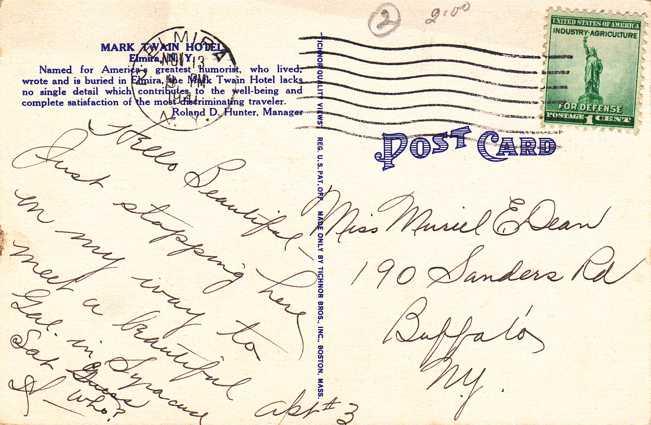 2
2.00
MARK TWAIN HOTEL
Elmira, N. Y.
Named for America's greatest humorist, who lived,
wrote and is buried in Elmira, the Mark Twain Hotel lacks
no single detail which contributes to the well-being and
complete satisfaction of the most discriminating traveler.
Roland D. Hunter, Manager
ELMIRA
NOV 13
PM
N.Y.
UNITED STATES OF AMERICA
INDUSTRY-AGRICULTURE
FOR DEFENSE
POSTAGE 1 CENT
POST CARD
TICHNOR QUALITY VIEWS REG. U.S. PAT. OFF. MADE ONLY BY TICHNOR BROS., INC., BOSTON, MASS.
Hello Beautiful –
Just stopping here
on my way to
meet a beautiful
Gal. in Syracuse
Sat Guess
Who?
Al –
Miss Muriel E Dean
190 Sanders Rd
Buffalo
N.Y.
Apt # 3